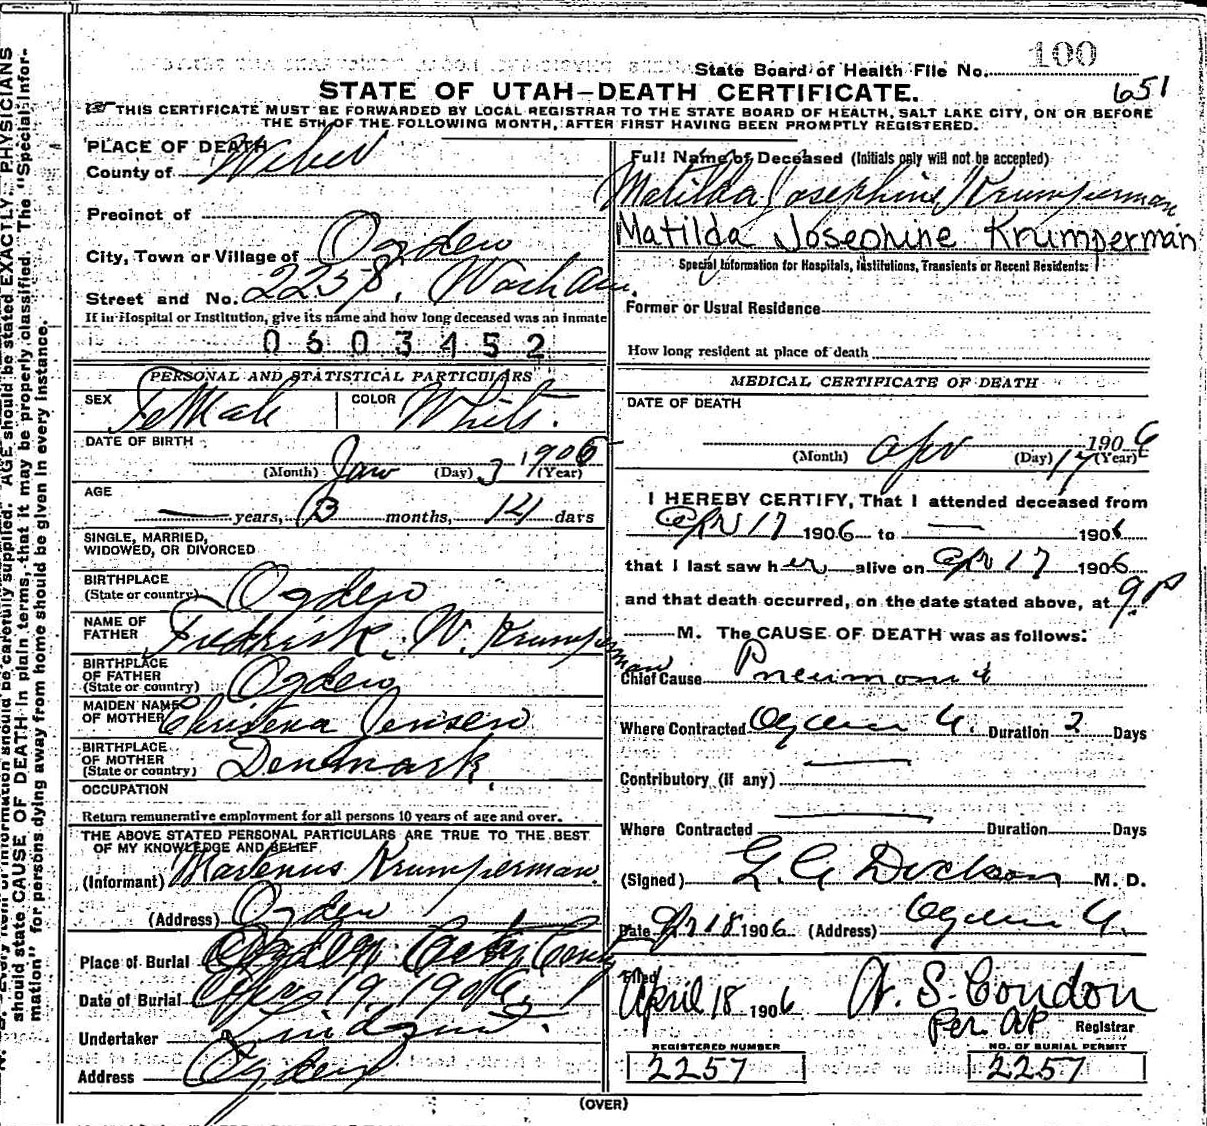 should state CAUSE OF DEATH in plain terms, that it may be properly classified. The "Special Infor-
mation" for persons dying away from home should be given in every instance.
100
State Board of Health File No.
651
STATE OF UTAH—DEATH CERTIFICATE.
THIS CERTIFICATE MUST BE FORWARDED BY LOCAL REGISTRAR TO THE STATE BOARD OF HEALTH, SALT LAKE CITY, ON OR BEFORE
THE 5TH OF THE FOLLOWING MONTH, AFTER FIRST HAVING BEEN PROMPTLY REGISTERED.
PLACE OF DEATH
County of Weber
Precinct of
City, Town or Village of Ogden
Street and No. 2258, Wash Ave.
If in Hospital or Institution, give its name and how long deceased was an inmate
0603452
PERSONAL AND STATISTICAL PARTICULARS
SEX FeMale COLOR White.
DATE OF BIRTH
(Month) Jan (Day) 3 1906 (Year)
AGE
— years, 3 months, 14 days
SINGLE, MARRIED,
WIDOWED, OR DIVORCED
BIRTHPLACE
(State or country) Ogden
NAME OF
FATHER Fredrick. W. Krumperman
BIRTHPLACE
OF FATHER
(State or country) Ogden
MAIDEN NAME
OF MOTHER Christena Jensen
BIRTHPLACE
OF MOTHER
(State or country) Denmark.
OCCUPATION
Return remunerative employment for all persons 10 years of age and over.
THE ABOVE STATED PERSONAL PARTICULARS ARE TRUE TO THE BEST
OF MY KNOWLEDGE AND BELIEF
(Informant) Marlenus Krumperman.
(Address) Ogden
Place of Burial Ogden City
Date of Burial 19, 1906.
Undertaker Lindquist.
Address Ogden
Full Name of Deceased (Initials only will not be accepted)
Matilda Josephine Krumperman.
Matilda Josephine Krumperman
Special Information for Hospitals, Institutions, Transients or Recent Residents:
Former or Usual Residence
How long resident at place of death
MEDICAL CERTIFICATE OF DEATH
DATE OF DEATH
(Month) Apr (Day) 17 1906 (Year)
I HEREBY CERTIFY, That I attended deceased from
Apr 17 1906 to — 1906
that I last saw her alive on Apr 17 1906
and that death occurred, on the date stated above, at 9. P
M. The CAUSE OF DEATH was as follows:
Chief Cause Pneumonia
Where Contracted Ogden U. Duration 2 Days
Contributory (if any) —
Where Contracted — Duration Days
(Signed) Dickson M. D.
Date Apr 18 1906 (Address) Ogden U.
Filed
April 18 1906 A. S. Condon
Per AP Registrar
REGISTERED NUMBER
2257
NO. OF BURIAL PERMIT
2257
(OVER)